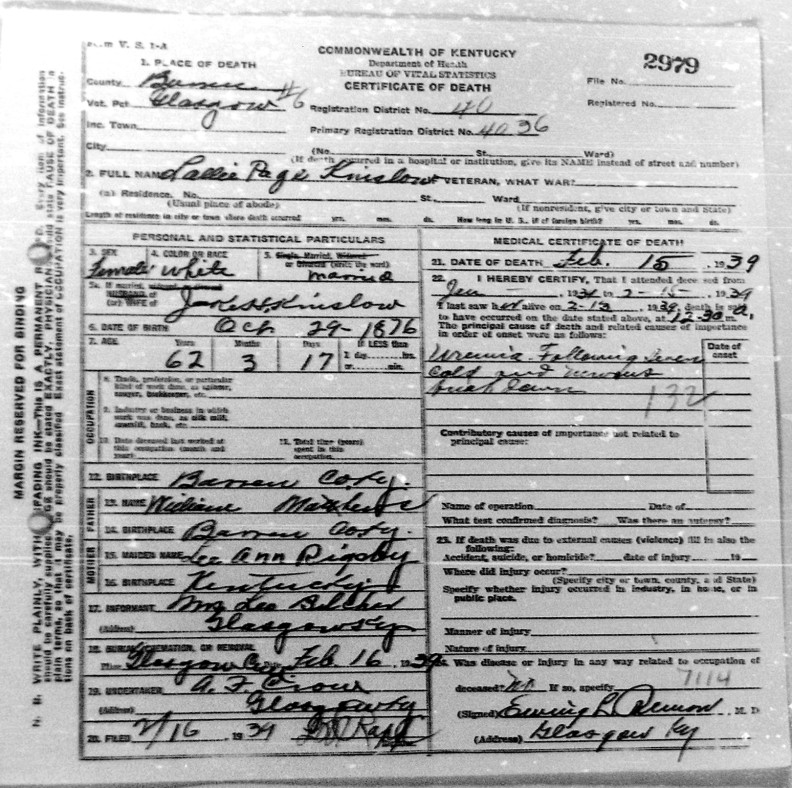 V. S. 1-A
COMMONWEALTH OF KENTUCKY
Department of Health
BUREAU OF VITAL STATISTICS
CERTIFICATE OF DEATH
2979
1. PLACE OF DEATH
County Barren
Vot. Pct. Glasgow #6
Inc. Town
City
File No.
Registered No.
Registration District No. 40
Primary Registration District No. 4036
(No. St. Ward)
(If death occurred in a hospital or institution, give its NAME instead of street and number)
2. FULL NAME Lallie Page Kinslow VETERAN, WHAT WAR?
(a) Residence. No. St., Ward
(Usual place of abode) (If nonresident, give city or town and State)
Length of residence in city or town where death occurred yrs. mos. ds. How long in U. S., if of foreign birth? yrs. mos. ds.
PERSONAL AND STATISTICAL PARTICULARS
3. SEX 4. COLOR OR RACE 5. Single, Married, Widowed
or Divorced (write the word)
Female White married
5a. If married, widowed or divorced
HUSBAND of
(or) WIFE of Jake H. Kinslow
6. DATE OF BIRTH Oct 29-1876
7. AGE Years Months Days If LESS than
62 3 17 1 day hrs.
or min.
OCCUPATION
8. Trade, profession, or particular
kind of work done, as spinner,
sawyer, bookkeeper, etc.
9. Industry or business in which
work was done, as silk mill,
sawmill, bank, etc.
10. Date deceased last worked at
this occupation (month and
year)
11. Total time (years)
spent in this
occupation
12. BIRTHPLACE Barren Co Ky.
FATHER
13. NAME William Matthews
14. BIRTHPLACE Barren Co Ky.
MOTHER
15. MAIDEN NAME Lee Ann Rigsby
16. BIRTHPLACE Kentucky
17. INFORMANT Mrs Lee Belcher
(Address) Glasgow Ky
18. BURIAL, CREMATION, OR REMOVAL
Place Glasgow Cem Date Feb. 16, 1939
19. UNDERTAKER A. F. Crow
(Address) Glasgow Ky
20. FILED 2/16, 1939
MEDICAL CERTIFICATE OF DEATH
21. DATE OF DEATH Feb. 15, 1939
22. I HEREBY CERTIFY, That I attended deceased from
Jan to 2-15, 1939
I last saw her alive on 2-15 1939 death is said
to have occurred on the date stated above, at 12-30 a.
The principal cause of death and related causes of importance
in order of onset were as follows:
Date of
onset
Uremia Following Severe
cold and nervous
break down
132
Contributory causes of importance not related to
principal cause:
Name of operation Date of
What test confirmed diagnosis? Was there an autopsy?
23. If death was due to external causes (violence) fill in also the
following:
Accident, suicide, or homicide? date of injury 19
Where did injury occur?
(Specify city or town, county, and State)
Specify whether injury occurred in industry, in home, or in
public place.
Manner of injury
Nature of injury
24. Was disease or injury in any way related to occupation of
7114
deceased? No If so, specify
(Signed) M. D.
(Address) Glasgow Ky
MARGIN RESERVED FOR BINDING
N. B. WRITE PLAINLY, WITH FADING INK—THIS IS A PERMANENT Every item of information
should be carefully supplied. AGE should be stated EXACTLY. PHYSICIANS should state CAUSE OF DEATH in
plain terms, so that it may be properly classified. Exact statement of OCCUPATION is very important. See instruc-
tions on back of certificate.